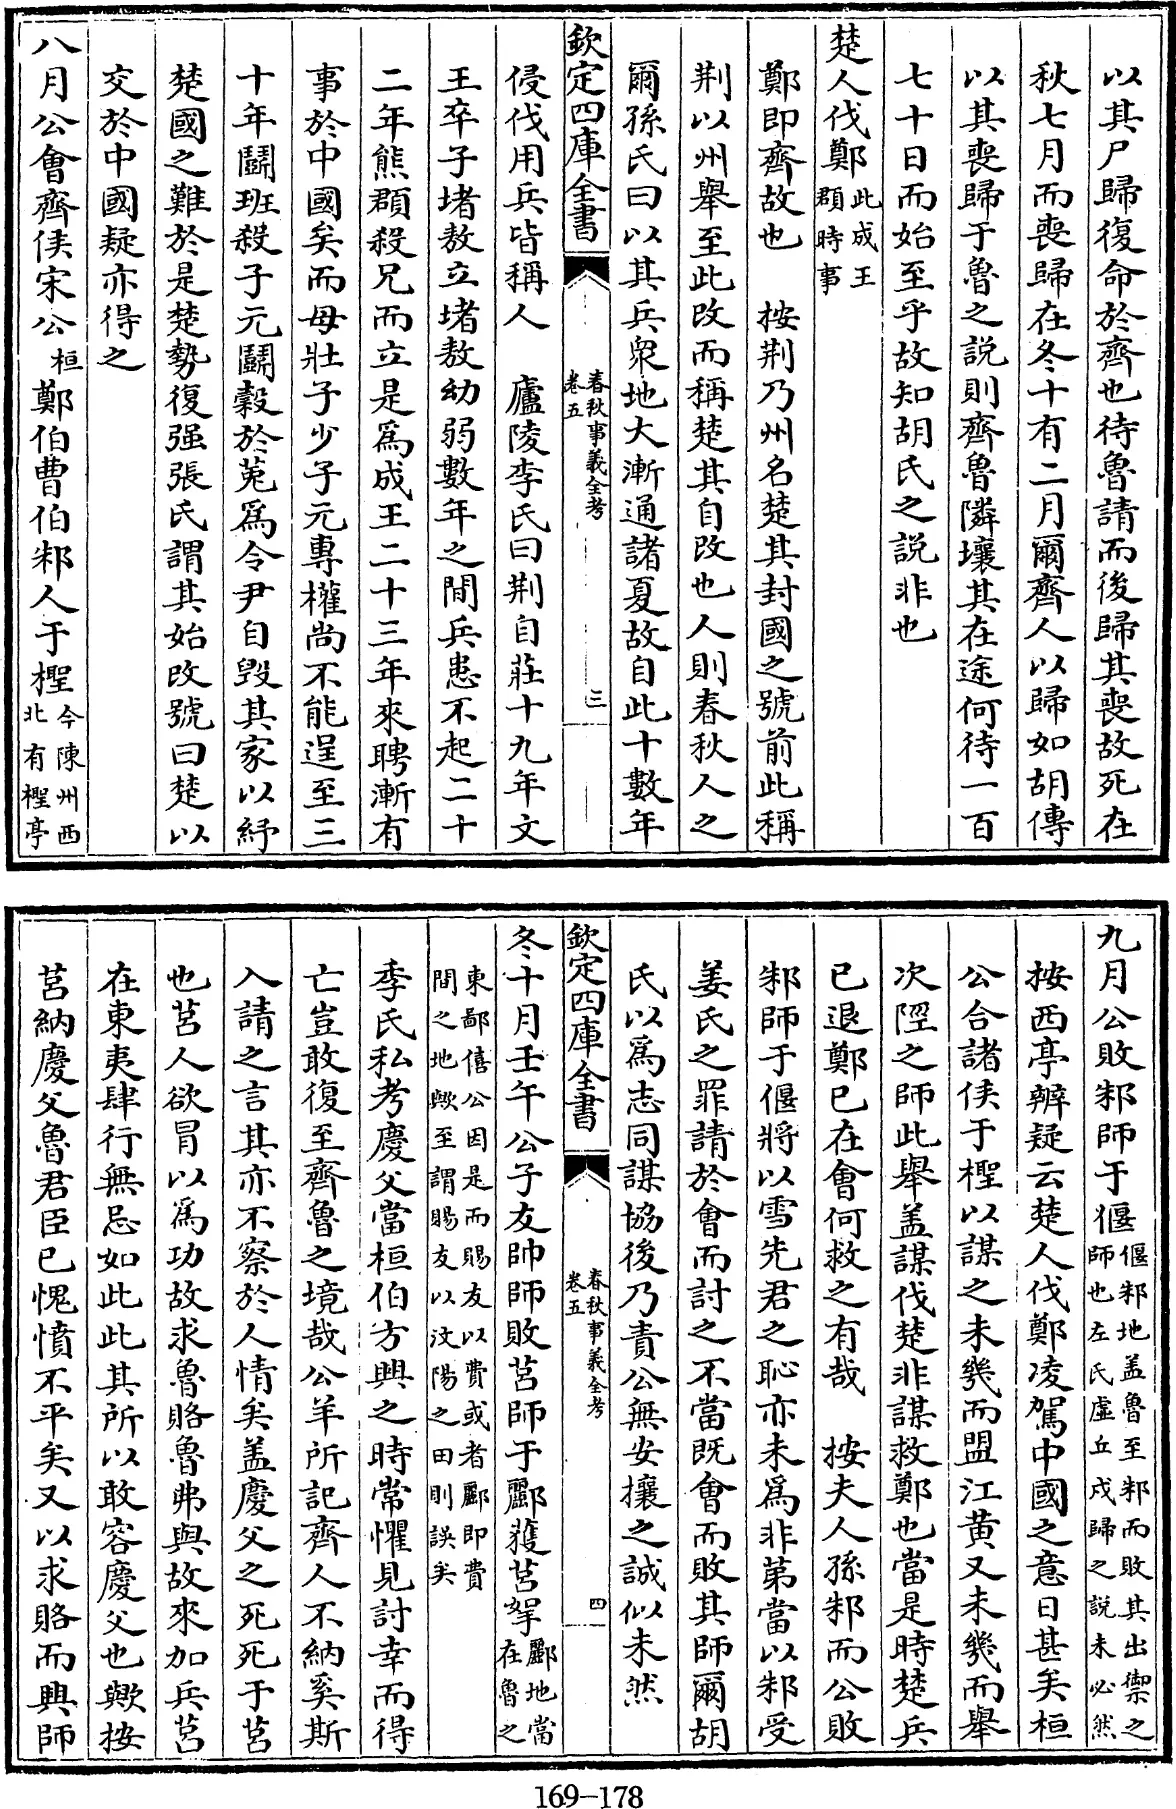 以其尸歸復命於齊也待魯請而後歸其喪故死在
秋七月而喪歸在冬十有二月爾齊人以歸如胡傳
以其喪歸于魯之説則齊魯隣壤其在途何待一百
七十日而始至乎故知胡氏之説非也
楚人伐鄭此成王頵時事
鄭即齊故也 按荆乃州名楚其封國之號前此稱
荆以州舉至此改而稱楚其自改也人則春秋人之
爾孫氏曰以其兵衆地大漸通諸夏故自此十數年
欽定四庫全書 春秋事義全考 卷五 三
侵伐用兵皆稱人 廬陵李氏曰荆自莊十九年文
王卒子堵敖立堵敖幼弱數年之間兵患不起二十
二年熊頵殺兄而立是爲成王二十三年來聘漸有
事於中國矣而母壯子少子元專權尚不能逞至三
十年鬭班殺子元鬭榖於菟爲令尹自毀其家以紓
楚國之難於是楚勢復强張氏謂其始改號曰楚以
交於中國疑亦得之
八月公會齊侯宋公桓鄭伯曹伯邾人于檉今陳州西北有檉亭
九月公敗邾師于偃偃邾地盖魯至邾而敗其出禦之師也左氏虛丘戍歸之説未必然
按西亭辨疑云楚人伐鄭凌駕中國之意日甚矣桓
公合諸侯于檉以謀之未幾而盟江黄又未幾而舉
次陘之師此舉盖謀伐楚非謀救鄭也當是時楚兵
已退鄭已在會何救之有哉 按夫人孫邾而公敗
邾師于偃將以雪先君之恥亦未爲非第當以邾受
姜氏之罪請於會而討之不當既會而敗其師爾胡
氏以爲志同謀協後乃責公無安攘之誠似未然
欽定四庫全書 春秋事義全考 卷五 四
冬十月壬午公子友帥師敗莒師于酈獲莒挐酈地當在魯之
東鄙僖公因是而賜友以費或者酈即費間之地歟至謂賜友以汶陽之田則誤矣
季氏私考慶父當桓伯方興之時常懼見討幸而得
亡豈敢復至齊魯之境哉公羊所記齊人不納奚斯
入請之言其亦不察於人情矣盖慶父之死死于莒
也莒人欲冒以爲功故求魯賂魯弗與故來加兵莒
在東夷肆行無忌如此此其所以敢容慶父也歟按
莒納慶父魯君臣已愧憤不平矣又以求賂而興師
169-178